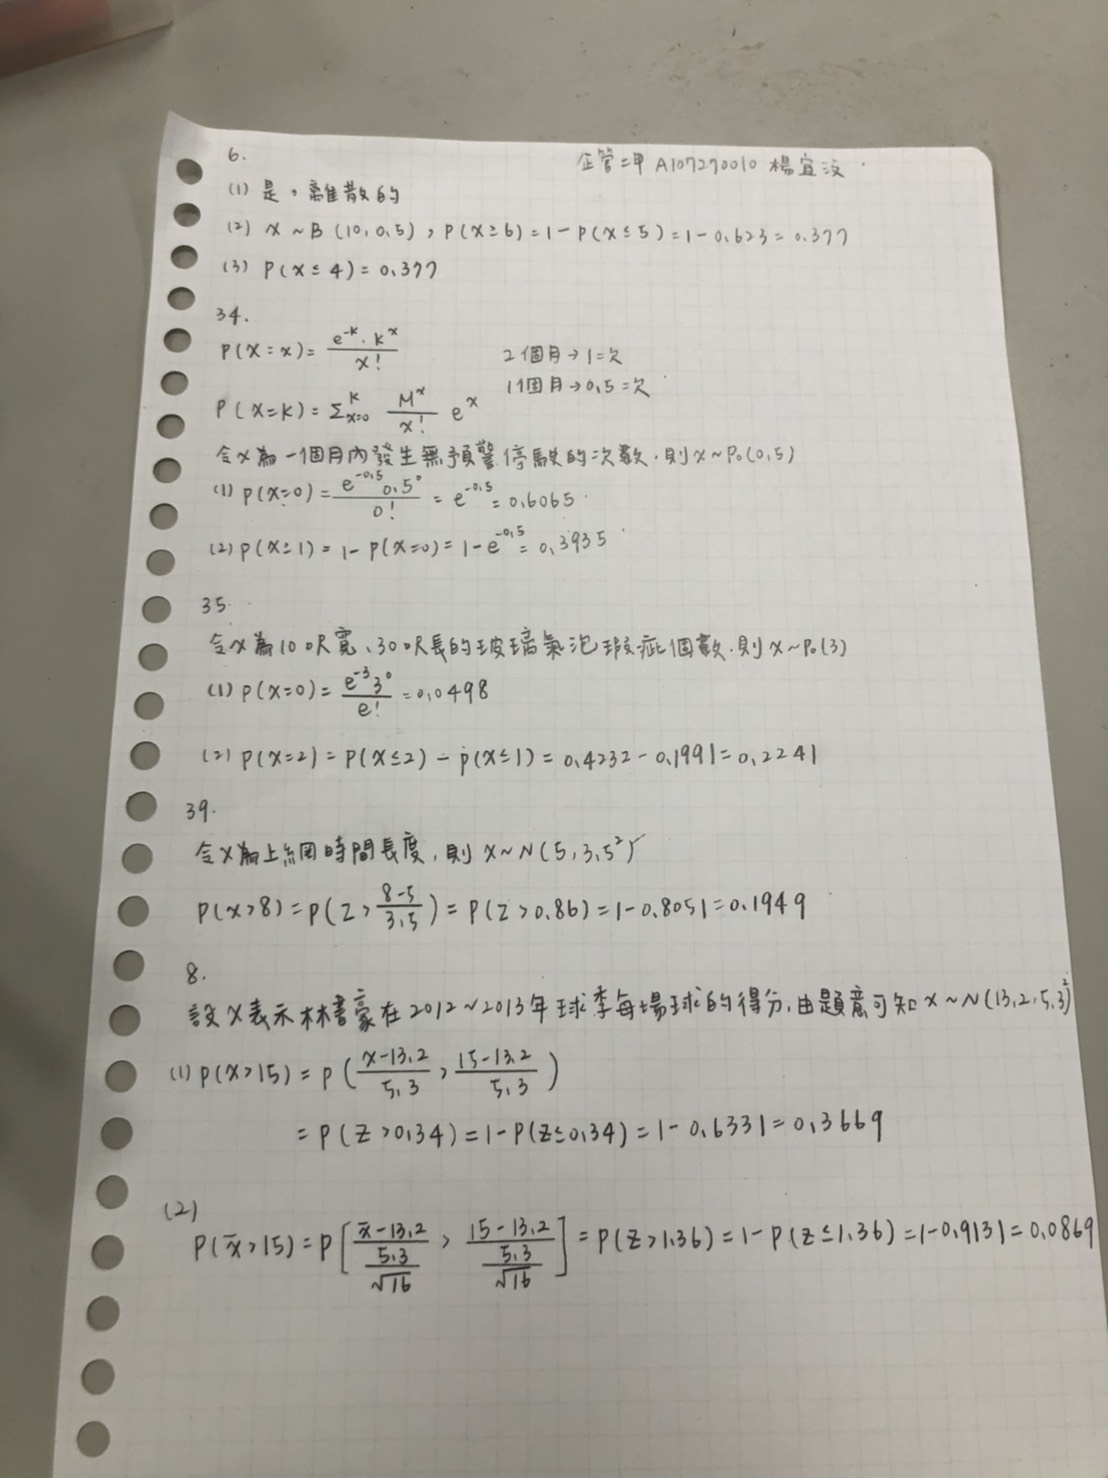 企管二甲 A107270010 楊宜汶
6.
(1) 是，離散的
(2) x ~ B (10, 0.5), P(x≥6) = 1 - P(x≤5) = 1 - 0.623 = 0.377
(3) P(x≤4) = 0.377
34.
P(x=x) = \frac{e^{-k} \cdot k^x}{x!} 2個月→1次
1個月→0.5次
P(x=k) = Σ_{x=0}^{k} \frac{M^x}{x!} e^x
令x為一個月內發生無預警停駛的次數,則x~Po(0.5)
(1) P(x=0) = \frac{e^{-0.5} 0.5^0}{0!} = e^{-0.5} = 0.6065
(2) P(x≥1) = 1 - P(x=0) = 1 - e^{-0.5} = 0.3935
35.
令x為10呎寬、30呎長的玻璃氣泡瑕疵個數,則x~Po(3)
(1) P(x=0) = \frac{e^{-3} 3^0}{e!} = 0.0498
(2) P(x=2) = P(x≤2) - P(x≤1) = 0.4232 - 0.1991 = 0.2241
39.
令x為上網時間長度,則 x~N(5, 3.5²)
P(x>8) = P(Z > \frac{8-5}{3.5}) = P(Z>0.86) = 1 - 0.8051 = 0.1949
8.
設x表示林書豪在2012~2013年球季每場球的得分,由題意可知x~N(13.2, 5.3²)
(1) P(x>15) = P(\frac{x-13.2}{5.3} > \frac{15-13.2}{5.3})
= P(Z>0.34) = 1 - P(Z≤0.34) = 1 - 0.6331 = 0.3669
(2)
P(x̄>15) = P[\frac{x̄-13.2}{\frac{5.3}{√16}} > \frac{15-13.2}{\frac{5.3}{√16}}] = P(Z>1.36) = 1 - P(Z≤1.36) = 1 - 0.9131 = 0.0869